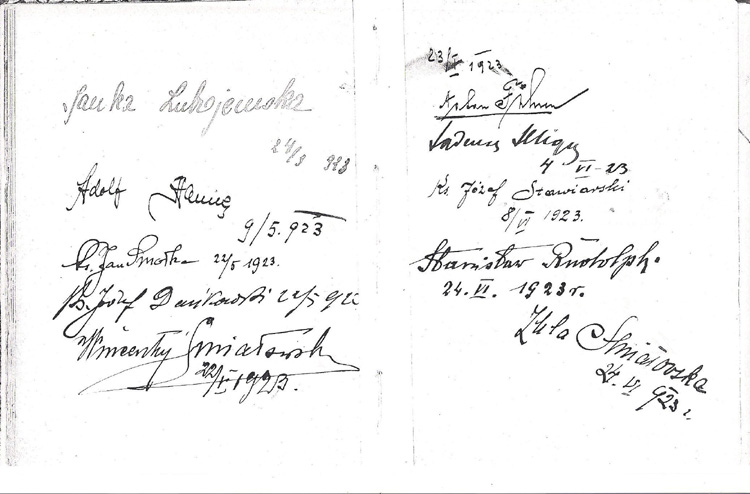 Janka Łukojemska
24/3 923
Adolf
9/5. 923
Ks. Jan Smółka 22/5 1923.
Ks. Józef Dańkowski 22/5 922
Wincenty Smiałowski
22/V 1923.
23/V 1923
Tadeusz
4 VI - 23
Ks Józef Stawiarski
8/VI 1923.
Stanisław Rudolph.
24. VI. 1923 r.
Zula Smiałowska
24. VI 923 r.